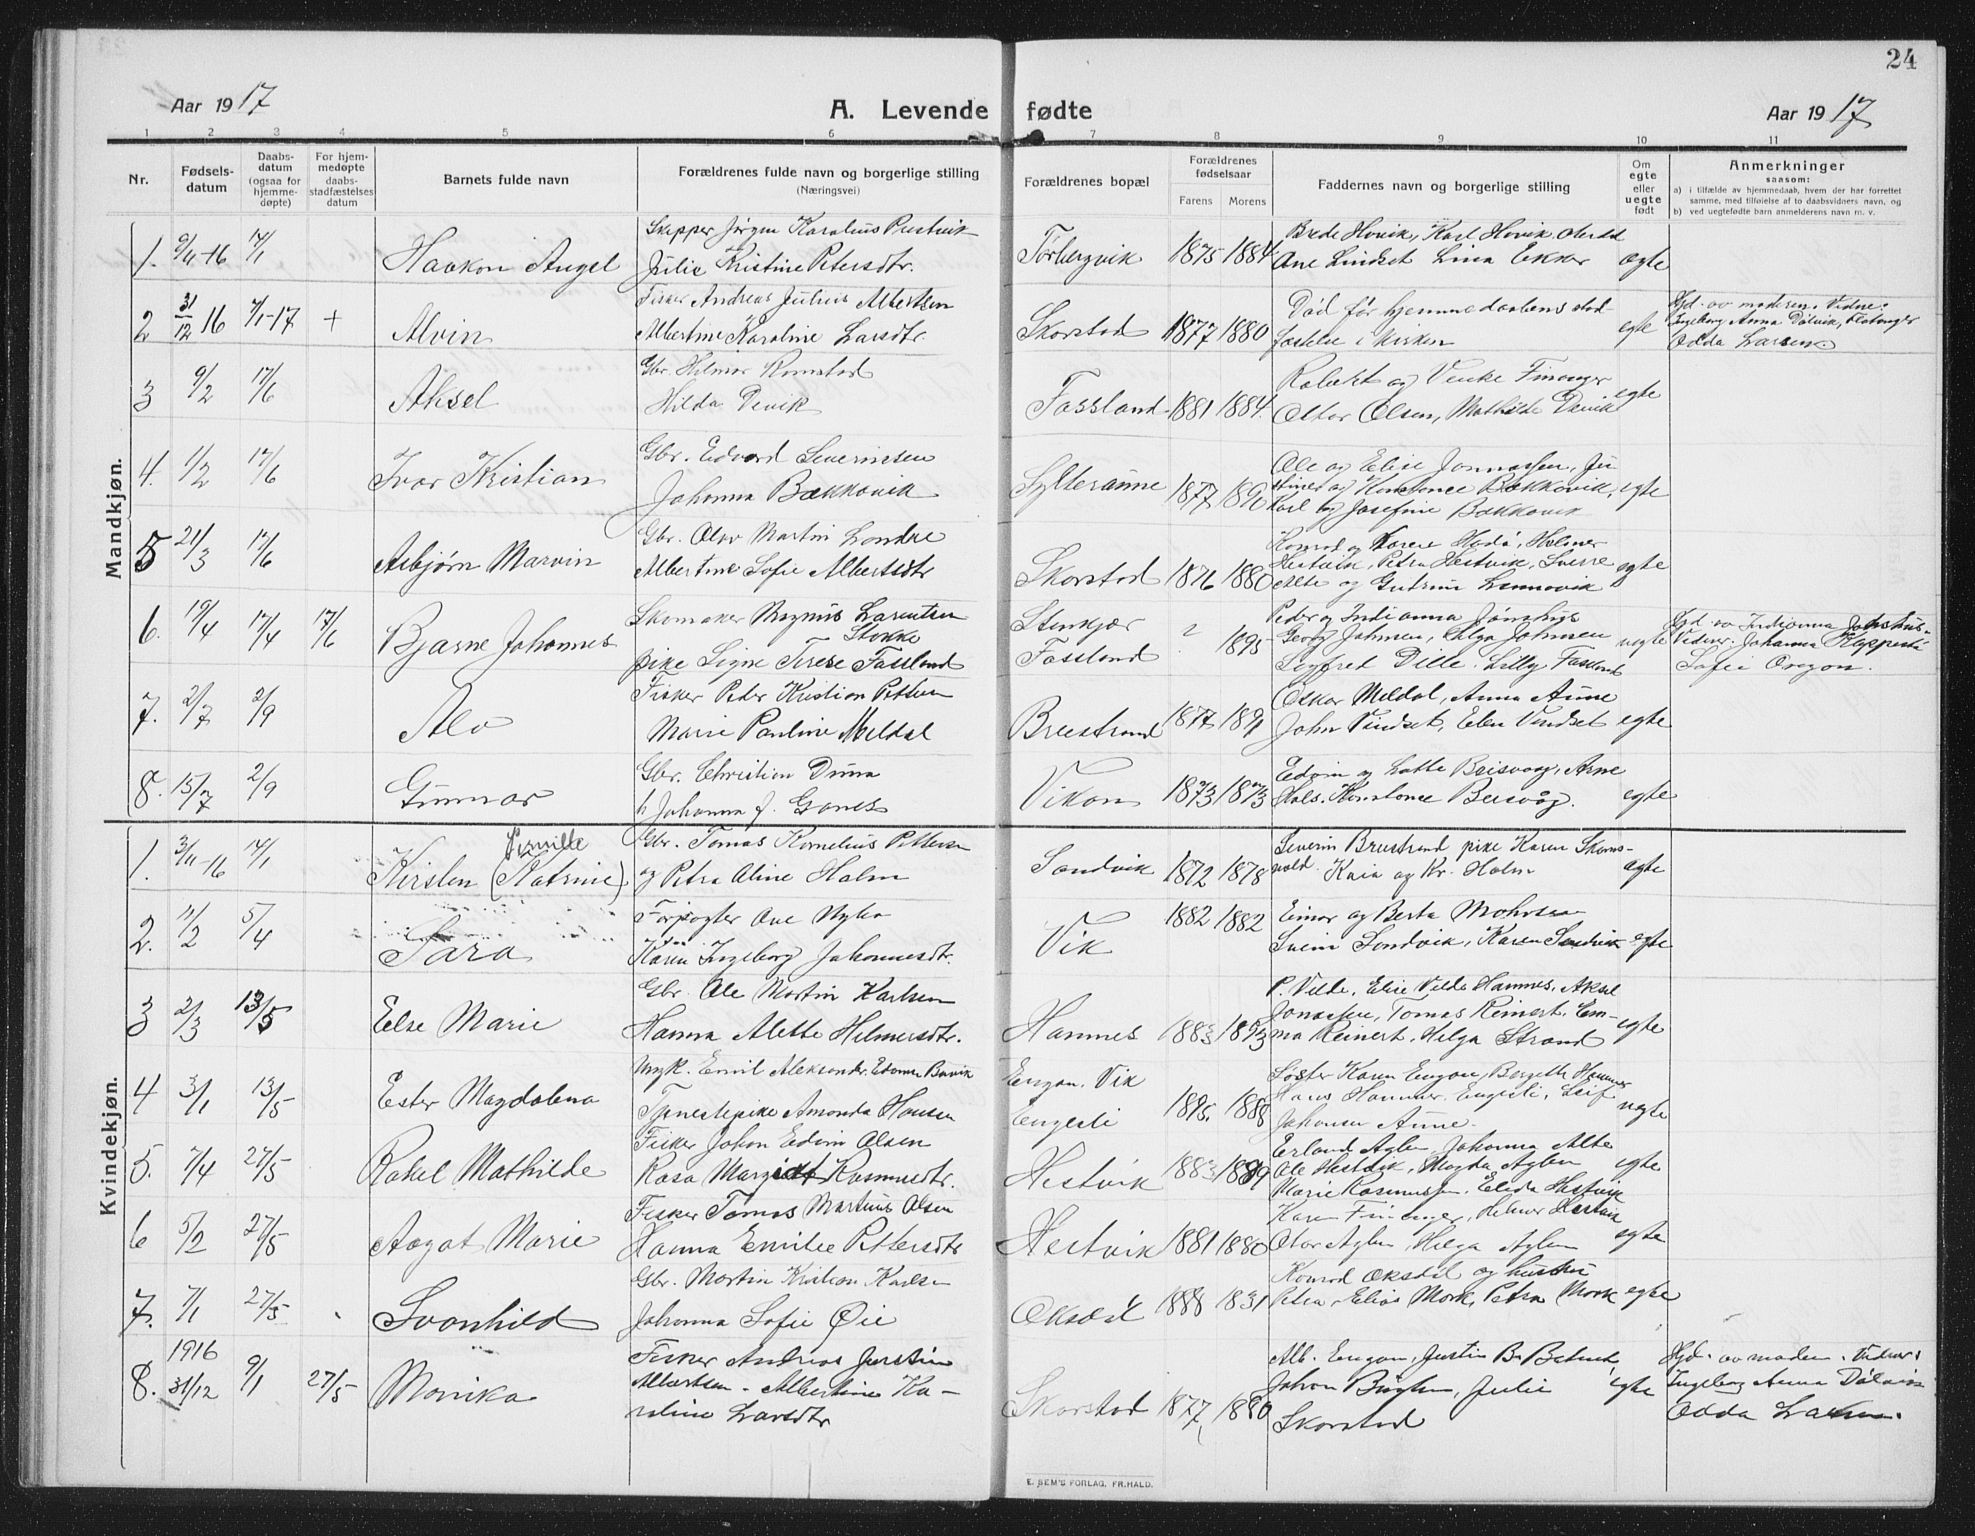 24
Aar 1917
A. Levende fødte
Aar 1917
1 2 3 4 5 6 7 8 9 10 11
Nr.
Fødsels-
datum
Daabs-
datum
(ogsaa for
hjemme-
døpte)
For hjem-
medøpte
daabs-
stadfæstelses
datum
Barnets fulde navn
Forældrenes fulde navn og borgerlige stilling
(Næringsvei)
Forældrenes bopæl
Forældrenes
fødselsaar
Farens Morens
Faddernes navn og borgerlige stilling
Om
egte
eller
uegte
født
Anmerkninger
saasom:
a) i tilfælde av hjemmedaab, hvem der har forrettet
samme, med tilføielse af to daabsvidners navn, og
b) ved uegtefødte barn anmelderens navn m. v.
Mandkjøn.
1. 9/11-16 14/1 Haakon Angel
Skipper Jørgen Karolius
Julie Kristine Petersdtr.
1875 1884
Ane Lindset Lina Ekker egte
2 31/12 16 7/1-17 + Alvin
Fisker Andreas Julius Albertsen
Albertine Karoline Larsdtr.
Skorstad 1877 1880
Død før hjemmedaabens stad-
fæstelse i kirken egte
Hjd. av moderen. Vidne:
Ingeborg Anna Dølvik, Flatanger
Odda Larsen.
3 9/2 17/6 Aksel
Gbr. Hilmar Romstad
Hilda Devik
Fossland 1881 1884.
og Venke Finanger
Ottar Olsen, Mathilde Devik egte
4. 1/2 17/6 Ivar Kristian
Gbr. Edvard Severinsen
Johanna Bækkavik
Sylterånne 1877 1890
Ole og Elise Jonnassen, Ju-
stines og Konstance Bækkavik,
Karl og Josefine Bækkavik egte
5 21/3 17/6 Asbjørn Marvin
Gbr. Olav Martin
Albertine Sofie Albertsdtr
Skorstad 1876 1880
Konrad og Hadå, Helmer
Hestvik, Petra Hestvik, Sverre
Alte og egte
6. 19/4 17/4 17/6 Bjarne Johannes
Skomaker Magnus Larentsen
Stokke
pike Signe Terese Fossland
Stenkjær
Fossland
? 1895
Peder og Indianna
Georg Johnsen, Helga Johnsen
Sigfred Dille. Lilly Fossland uegte
Hjd av Indianna
Vidner. Johanna
Sofie
7. 2/7 2/9 Alv
Fisker Peter Kristian Pettersen
Marie Pauline Meldal
Breistrand 1877 1891
Oskar Meldal, Anna Aune
John Vindset, Elen Vindset egte
8. 15/7 2/9 Gunnar
Gbr. Christian Duna
h Johanna f.
Vikan 1873 1873
Edvin og Lotte Beisvaag, Arne
Hals. Konstance Beisvåg. egte
Kvindekjøn.
1. 3/11-16 14/1
Pernille
Kirsten (Katrine)
Gbr. Tomas Kornelius Pettersen
og Petra Aline Holm
Sandvik 1872 1878
Severin Breistrand pike Karen
Kaia og Kr. Holm egte
2. 11/2 5/4 Sara
Forpagter Ove
Karen Ingeborg Johannesdtr.
Vik 1882 1882
Einar og Berta
Svein Sandvik, Karen Sandvik egte
3 2/3 13/5 Else Marie
Gbr. Ole Martin Karlsen
Hanna Alette Helmersdtr.
Hamnes 1883 1893
P. Vilde, Elise Vilde Hamnes, Aksel
Jonassen, Tomas Reinert, Em-
ma Reinert, Helga Strand egte
4 3/1 13/5 Ester Magdalena
Ungk. Emil Aleksander
Tjenestepike Amanda Hansen
Engan. Vik
Engesli
1895. 1888
Søster Karen Engan,
Hans Engesli, Leif
Johansen Aune uegte
5. 7/4 27/5 Rakel Mathilde
Fisker Johan Edvin Olsen
Rosa Margidt Rasmusdtr.
Hestvik 1883 1889
Erland Aglen, Johanna Alte
Ole Hestvik, Magda Aglen
Marie Rasmussen. Elida Hestvik egte
6 5/2 27/5 Aagat Marie
Fisker Tomas Martinus Olsen
Hanna Emilie Pettersdtr
Hestvik 1881 1880
Karen Helmer Hestvik
Otar Aglen, Helga Aglen egte
7. 7/1 27/5 Svanhild
Gbr. Martin Kristian Karlsen
Johanna Sofie Øie
Oksdøl 1888 1891
Konrad Oksdøl og hustru
Petra, Elias Mork, Petra Mork egte
8. 1916
31/12 9/1 27/5 Monika
Fisker Andreas Justin
Albertsen. Albertine Ka-
roline Larsdtr
Skorstad 1877 1880
Alb. Engan, Justin
Johan Julie
Skorstad egte
Hjd. av moderen. Vidner:
Ingeborg Anna Dølvik
Odda Larsen.
E. SEM'S FORLAG, FR.HALD.